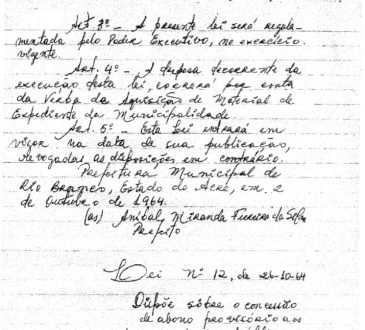 Art. 3º - A presente lei será regula-
mentada pelo Poder Executivo, no exercício
vigente.
Art. 4º - A despesa decorrente da
execução desta lei, correrá por conta
da Verba da Aquisição de Material de
Expediente da Municipalidade.
Art. 5º - Esta Lei entrará em
vigor na data de sua publicação,
revogadas as disposições em contrário.
Prefeitura Municipal de
Rio Branco, Estado do Acre, em 2
de Outubro de 1964.
(as) Anibal Miranda Ferreira da Silva
Prefeito
Lei Nº 12, de 26-10-64
Dispõe sôbre o
de abono provisório aos